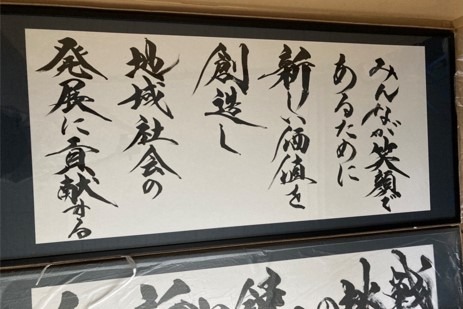 みんなが笑顔で
あるために
新しい価値を
創造し
地域社会の
発展に貢献する
挑戦